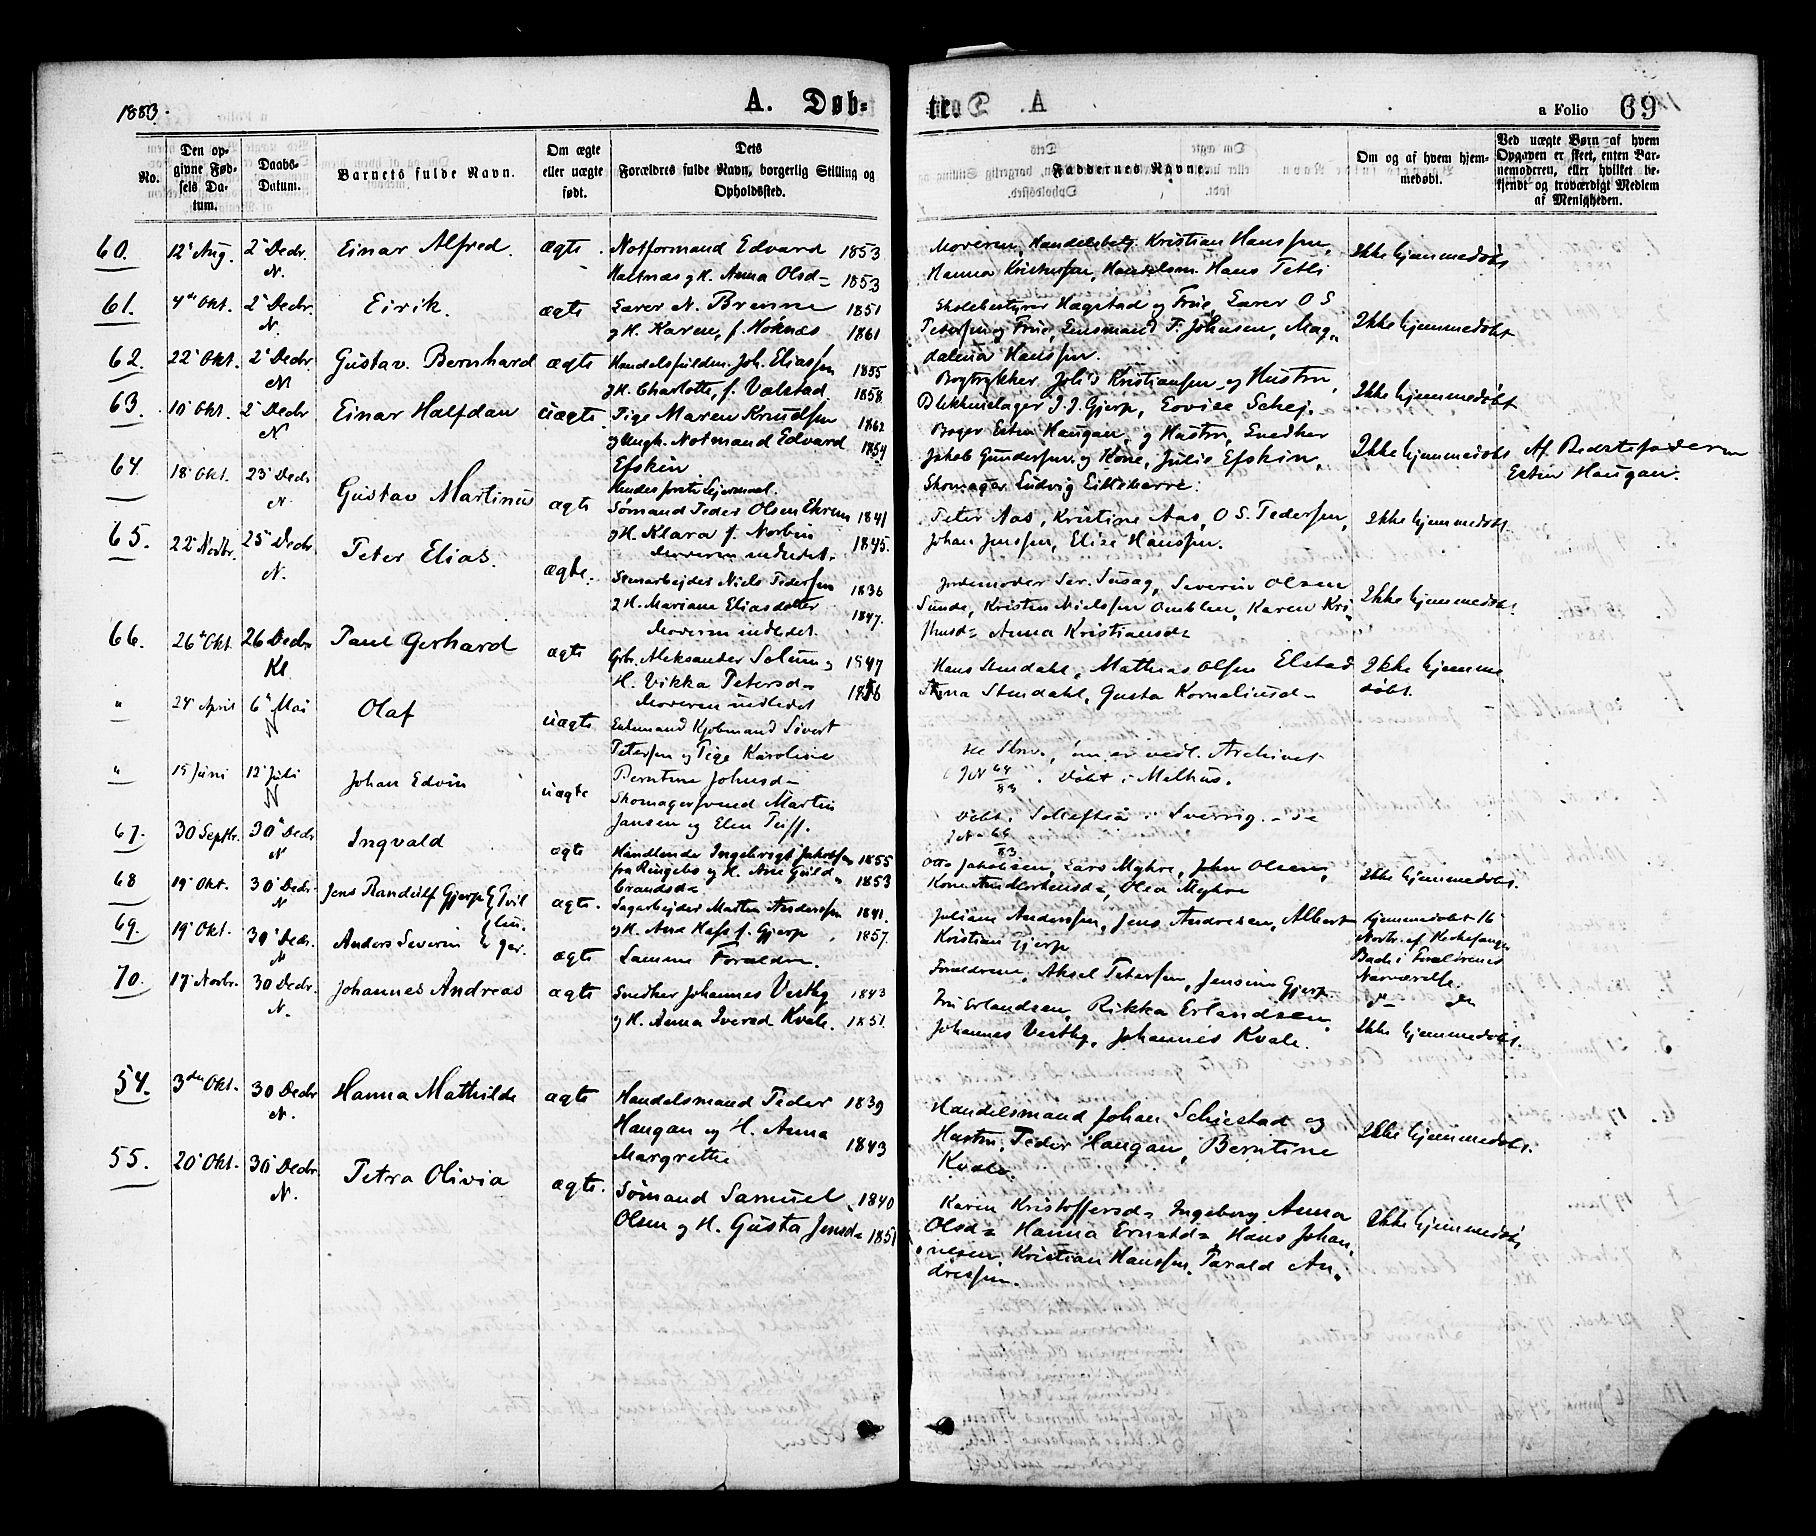 1883.
A. Døb-
te.
a Folio 69
No.
Den op-
givne Fød-
sels Da-
tum.
Daabs-
Datum.
Barnets fulde Navn.
Om ægte
eller uægte
født.
Dets
Forældres fulde Navn, borgerlig Stilling og
Opholdssted.
Faddernes Navne.
Om og af hvem hjem-
medøbt.
Ved uægte Børn af hvem
Opgaven er skeet, enten Bar-
nemoderen, eller hvilket be-
kjendt og troværdigt Medlem
af Menigheden.
60. 12' Aug. 2' Decbr. N. Einar Alfred. ægte. Notformand Edvard 1853
Anna Olsd= 1853
Handelsbetj. Kristian Hanssen,
Hanna Handelsm. Hans Tetli
Ikke hjemmedøbt
61. 4de Okt. 2' Decbr. N. Eirik. ægte Lærer N. 1851
og H. Karen, f. Høknæs 1861
Skolebestyrer Hægstad og Frue, Lærer O S
Petersen og Frue, T. Johnsen, Mag-
dalena Hanssen.
Ikke hjemmedøbt
62. 22' Okt. 2' Decbr N Gustav Bernhard ægte Joh. Eliassen 1855
og H. Charlotte, f. Valstad 1858
Bogtrykker Kristianssen og Hustru,
Blikkenslager J. J. Gjerp,
Ikke hjemmedøbt
63. 10' Okt. 2' Decbr N Einar Halfdan uægte. Pige Maren Knudssen 1862
og Ungk. Notmand Edvard 1854
Efskin
Hendes første Lejermaal.
Haugan, og Hustru, Snedker
Jakob Gunderssen og Kone, Julie Efskin,
Skomager Ludvig
Ikke hjemmedøbt
Af Bedstefaderen
Haugan.
64. 18' Okt. 23' Decbr N Gustav Martinus ægte Sømand Peder Olsen 1841
og H. Klara f. 1845.
Moderen indledet.
Peter Aas, Kristine Aas, O S. Pedersen,
Johan Jenssen, Elise Hanssen.
Ikke hjemmedøbt.
65. 22' Novbr. 25' Decbr. N. Peter Elias. ægte. Stenarbejder Niels Pederssen 1836
og H. Mariane Eliasdatter 1847.
Moderen indledet.
Jordemoder Susag, Severin Olsen
Sunde, Kristen Nielssen Karen Kri-
stensd= Anna Kristiansd=
Ikke hjemmedøbt.
66. 26' Okt. 26 Decbr Kl. Paul Gerhard ægte Grb. Aleksander Solum, 1847
H. Vikka Petersd=
Moderen indledet
Hans Stendahl, Mathias Olsen Elstad
Stendahl, Gusta Korneliusd=
Ikke hjemme
døbt.
" 24' April 6' Mai Olaf uægte Enkemand Kjøbmand Sivert
Petersen og Pige Karoline
Berntine Johnsd=
Archivet
J.N. 64/83. Døbt i Melhus.
" 15 Juni 12' Juli Johan Edvin uægte Skomagersvend Martin
Jansen og Elen
Døbt i Sollefteå i Sverrig.
J.N. 64/83
67. 30 Septbr. 30' Decbr N Ingvald ægte Handlende Ingebrigt Jakobsen 1855
fra Ringebo og H. Ane Guld- 1853
brandsd=
Otto Jakobsen, Lars Myhre, John Olsen,
Olea Myhre
Ikke hjemmedøbt.
68 19' Okt. 30' Decbr N Jens Randulf Gjerp ægte. Sagarbejder Martin Anderssen 1841.
f. Gjerp 1857.
Juliane Anderssen, Jens Andresen, Albert
Kristian Gjerp
Hjemmedøbt 16
Novbr. af Kirkesanger
Bach i Forældrenes
Nærværelse.
69. 19' Okt. 30' Decbr. N Anders Severin ægte Samme Forældre.
Forældrene, Aksel Peterssen, Jensine Gjerp
do do
70. 17' Novbr. 30 Decbr. N. Johannes Andreas ægte Snedker Johannes Vestby 1843
og H. Anna Iversd Kvale. 1851.
Fru Erlandsen, Rikka Erlandsen,
Johannes Vestby, Johannes Kvale.
Ikke hjemmedøbt.
54. 3die Okt. 30 Decbr N. Hanna Mathilde ægte Handelsmand Peder 1839
Haugan og H. Anna 1843
Margrethe
Handelsmand Johan Schiestad og
Hustru, Peder Haugan, Berntine
Kvale.
Ikke hjemmedøbt.
55. 20' Okt. 30' Decbr. N. Petra Olivia ægte. Sømand Samuel 1840
Olsen og H. Gusta Jensd= 1851
Karen Kristoffersd= Ingeborg Anna
Olsd= Hanna Ernstd=, Hans Johan-
nesen, Kristian Hanssen, Parald An-
dressen.
Ikke hjemmedøbt